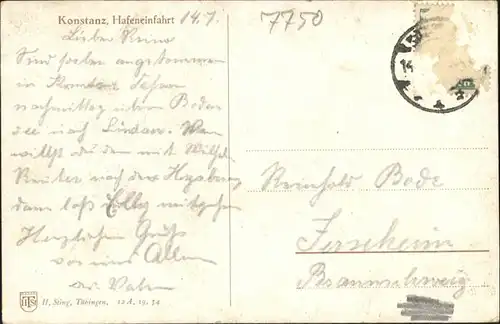 Konstanz, Hafeneinfahrt 14.7.
7750
Lieber Reino
Sind soeben angekommen
in Konstanz fahren
nachmittag übern Boden
see nach Lindau. Wenn
willst du dann mit Wilhelm
Reuter nach der
dann laß Elly mitgehen
Herzlichen Gruß
von uns Allen
Reinholt Bode
Jerxheim
Braunschweig
H. Sting, Tübingen. 12 A, 19. 54